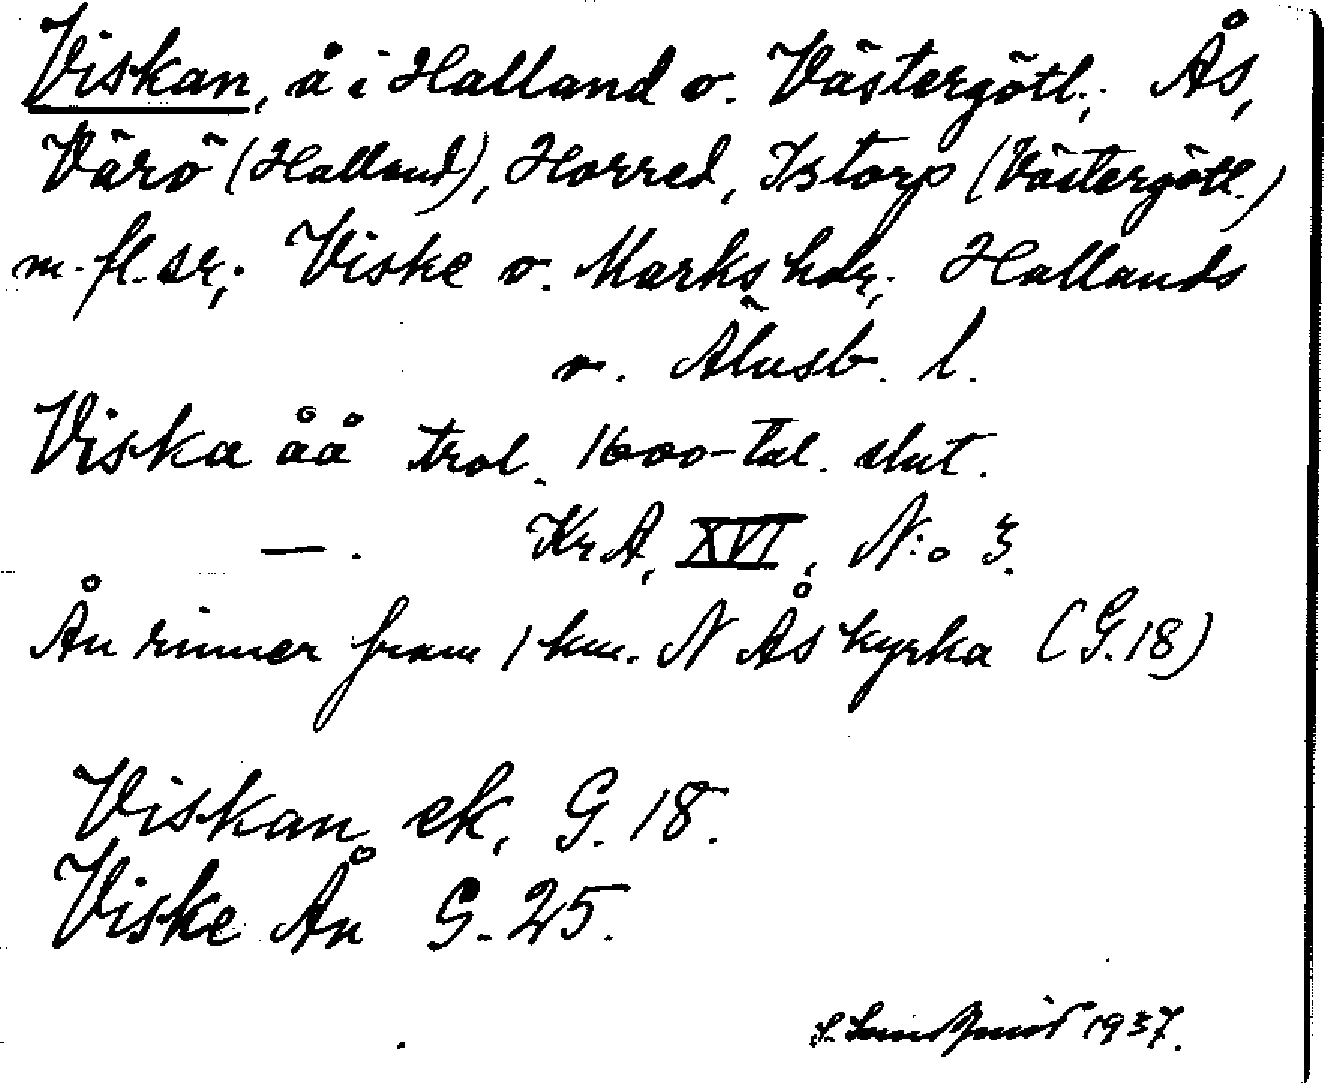 Viskan, å i Halland o. Västergötl.; Ås,
Värö (Halland), Horred, Istorp (Västergötl.)
m. fl. sr; Viske o. Marks hdr; Hallands
o. Älvsb. l.
Viska åå trol. 1600-tal. slut.
— . KrA, XVI, N:o 3.
Ån rinner fram 1 km. N Ås kyrka (G.18)
Viskan ek, G. 18.
Viske Ån G. 25.
1937.